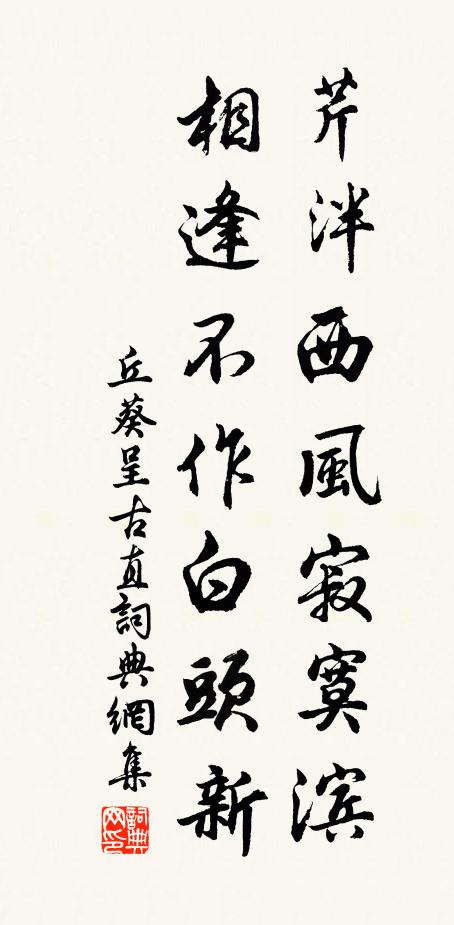 芹泮西風寂寞滨
相逢不作白頭新
丘葵呈古直詞典網集
詞典網印